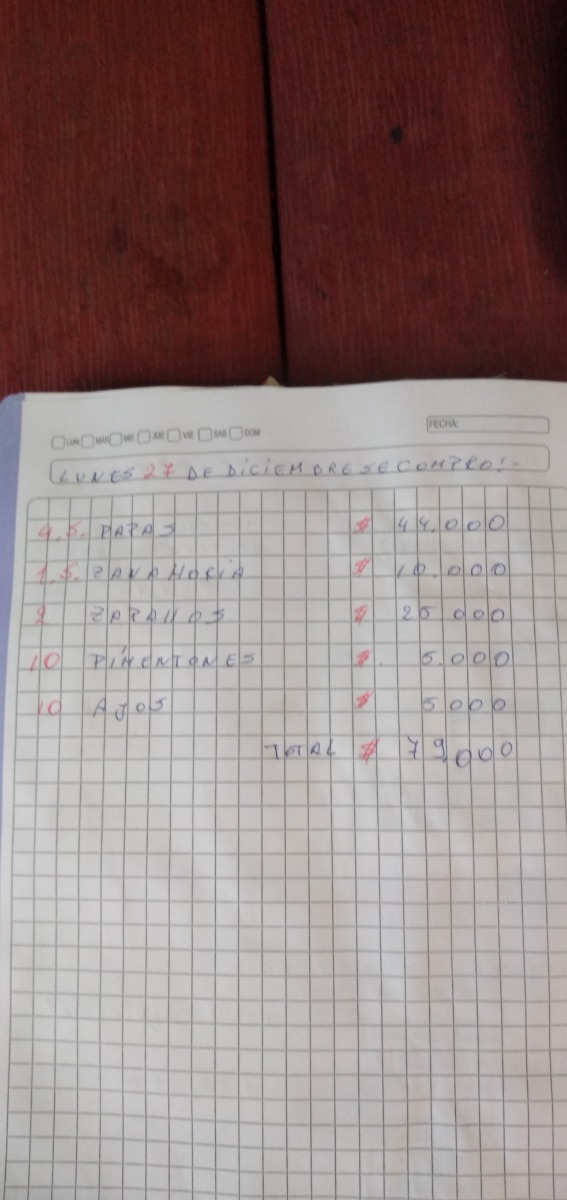 LUN MAR MIE JUE VIE SAB DOM FECHA:
LUNES 27 DE DICIEMBRE SE COMPRO!-
4.S. PAPAS $ 44.000
1.S. ZANAHORIA $ 10.000
2 ZAPALLOS $ 25 000
10 PIMENTONES $. 5.000
10 AJOS $ 5000
TOTAL $ 79,000